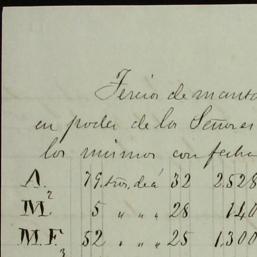 Tercios de manta
en poder de los Señores
los mismos con fecha
A. 79. tros. de á 32 2.528
M.2 5 " " " 28 140
M.F.3 52 " " " 25 1.300